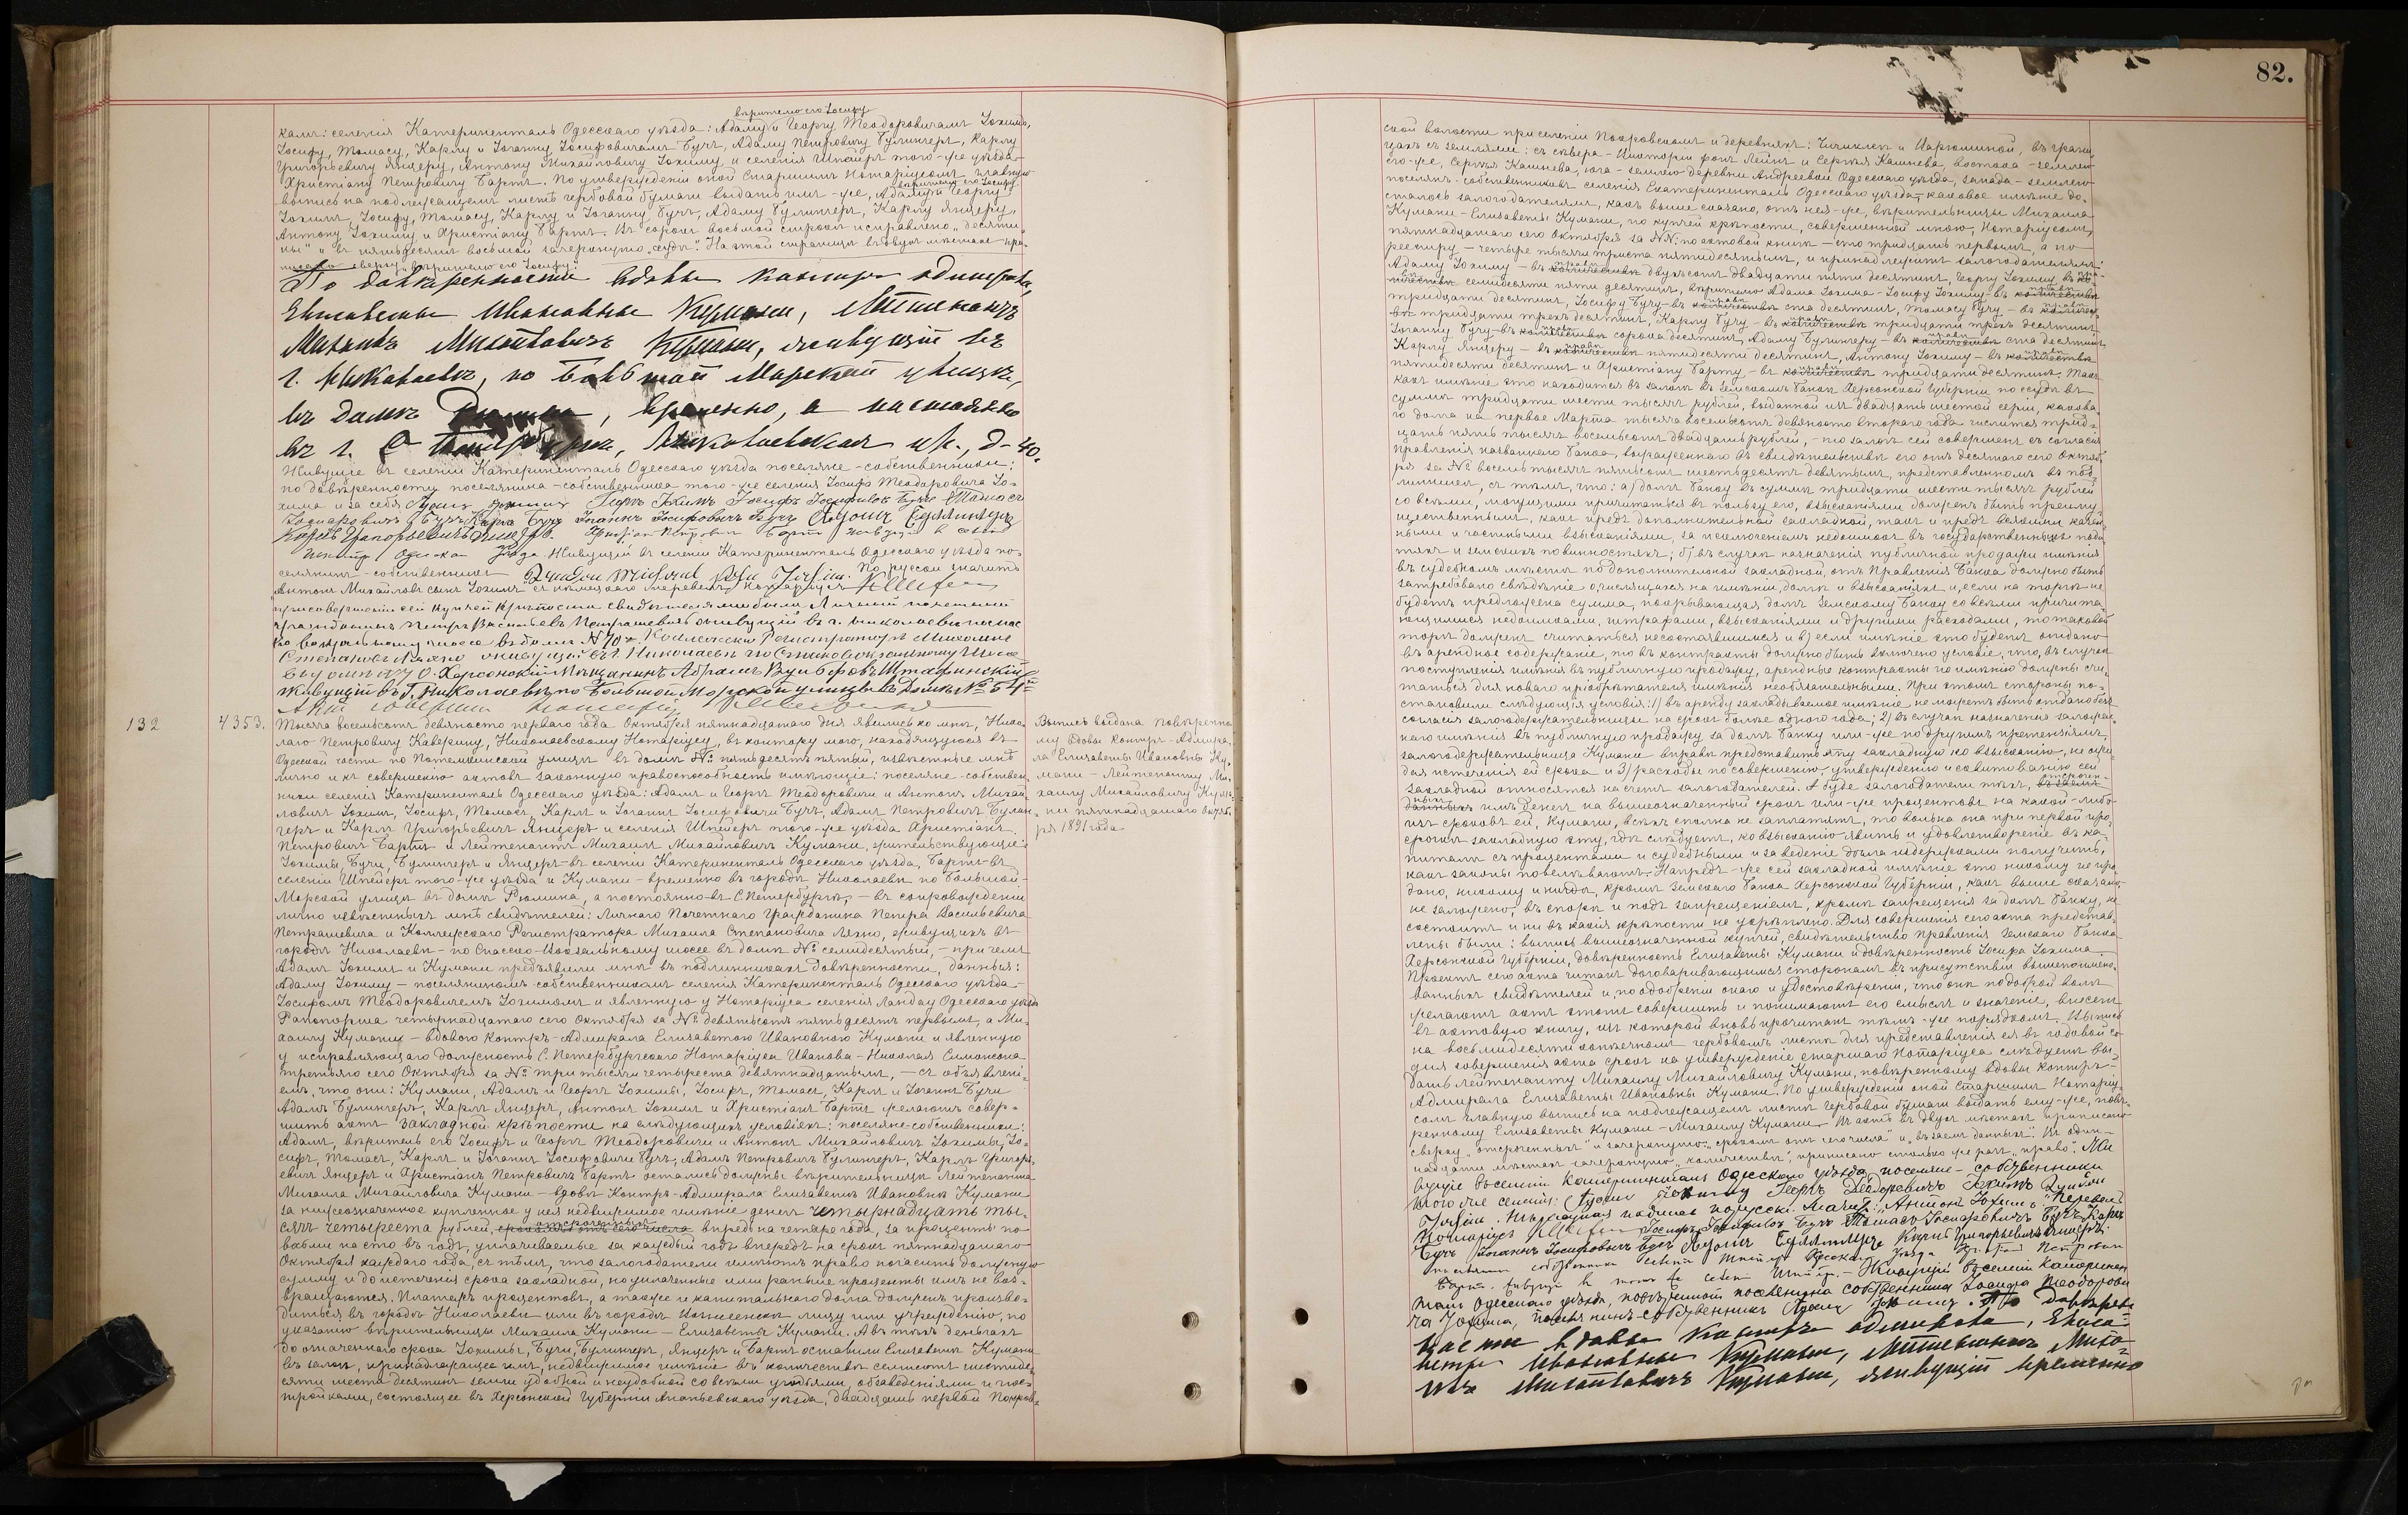 82.
вѣрителю его Іосифу
камъ: селенія Катериненталь Одесскаго уѣзда: Адаму и Георгу Теодоровичамъ Іохимъ,
Іосифу, Томасу, Карлу и Іоганну Іосифовичамъ Бучъ, Адаму Петровичу Булингеръ, Карлу
Григорьевичу Янцеру, Антону Михайловичу Іохиму и селенія Шпейеръ того-же уѣзда
Христіану Петровичу Бартъ. По утвержденіи оной Старшимъ Нотаріусомъ, главную
вѣрителю его Іосифу
выпись на подлежащемъ листѣ гербовой бумаги выдать имъ-же, Адаму и Георгу
Іохимъ, Іосифу, Томасу, Карлу и Іоганну Бучъ, Адаму Булингеръ, Карлу Янцеру,
Антону Іохиму и Христіану Бартъ. Въ сорокъ восьмой строкѣ исправлено „десяти-
ны" и въ пятьдесятъ восьмой зачеркнуто „судъ". На этой страницѣ въ двухъ мѣстахъ при-
писано сверху „вѣрителю его Іосифу".
По довѣренности вдовы контръ адмирала,
Елисаветы Ивановны Кумани, Лейтенантъ
Михаилъ Михайловичъ Кумани, живущій въ
г. Николаевѣ, по Большой Морской улицѣ,
въ домѣ Рюмина, временно, а постоянно
въ г. С Петербургѣ, Николаевская ул., д-40.
Живущіе въ селеніи Катериненталь Одесскаго уѣзда поселяне-собственники:
по довѣренности поселянина-собственника того-же селенія Іосифа Теодоровича Іо-
хима и за себя Адамъ Іохимъ Георгъ Іохимъ Іосифъ Іосифовъ Бучъ Томасъ
Іосифовичъ Бучъ Карлъ Бучъ Іоганнъ Іосифовичъ Бучъ Адамъ Булингеръ
Карлъ Григорьевичъ Янцеръ. Христіанъ Петровичъ Бартъ живущій в селеніи
Шпейеръ Одесскаго Уѣзда Живущій въ селеніи Катериненталь Одесскаго уѣзда по-
селянинъ-собственникъ По русски значитъ
„Антонъ Михайловъ сынъ Іохимъ" съ нѣмецкаго перевелъ Нотаріусъ
При совершеніи сей купчей крѣпости свидѣтелями были Личный почетный
гражданинъ Петръ Васильевъ Петрашевичъ живущій въ г. Николаевѣ по Спас
ко вокзальному шоссе въ домѣ №70й. Коллежскій Регистраторъ Михаилъ
Степановъ Ляхно живущій въ г. Николаевѣ по Спасковокзальному Шоссе
въ домѣ №70. Херсонскій Мѣщанинъ Абрамъ Вульфовъ
живущій въ Г. Николаевѣ по Большой Морской улицѣ въ Домѣ №
132
4353.
Тысяча восемьсотъ девяносто перваго года Октября пятнадцатаго дня явились ко мнѣ, Нико-
лаю Петровичу Каверину, Николаевскому Нотаріусу, въ контору мою, находящуюся въ
Одесской части по Потемкинской улицѣ въ домѣ № пятьдесятъ пятый, извѣстные мнѣ
лично и къ совершенію актовъ законную правоспособность имѣющіе: поселяне-собствен-
ники селенія Катериненталь Одесскаго уѣзда: Адамъ и Георгъ Теодоровичи и Антонъ Михай-
ловичъ Іохимъ, Іосифъ, Томасъ, Карлъ и Іоганнъ Іосифовичи Бучъ, Адамъ Петровичъ Булин-
геръ и Карлъ Григорьевичъ Янцеръ и селенія Шпейеръ того-же уѣзда Христіанъ
Петровичъ Бартъ и Лейтенантъ Михаилъ Михайловичъ Кумани, жительствующіе:
Іохимы, Бучи, Булингеръ и Янцеръ - въ селеніи Катериненталь Одесскаго уѣзда, Бартъ - въ
селеніи Шпейеръ того-же уѣзда и Кумани - временно въ городѣ Николаевѣ по Большой-
Морской улицѣ въ домѣ Рюмина, а постоянно въ С. Петербургѣ, - въ сопровожденіи
лично извѣстныхъ мнѣ свидѣтелей: Личнаго Почетнаго Гражданина Петра Васильевича
Петрашевича и Коллежскаго Регистратора Михаила Степановича Ляхно, живущихъ въ
городѣ Николаевѣ - по Спасско-Вокзальному шоссе въ домѣ № семидесятый, - при чемъ
Адамъ Іохимъ и Кумани предъявили мнѣ въ подлинникахъ довѣренности, данныя:
Адаму Іохиму - поселяниномъ-собственникомъ селенія Катериненталь Одесскаго уѣзда
Іосифомъ Теодоровичемъ Іохимомъ и явленную у Нотаріуса селенія Ландау Одесскаго уѣзда
Рапопорта четырнадцатаго сего Октября за № девятьсотъ пятьдесятъ первымъ, а Ми-
хаилу Кумани - вдовою Контръ-Адмирала Елизаветою Ивановною Кумани и явленную
у исправляющаго должность С. Петербургскаго Нотаріуса Иванова - Николая Симонсона
третьяго сего Октября за № три тысячи четыреста девятнадцатымъ, - съ объявлені-
емъ, что они: Кумани, Адамъ и Георгъ Іохимы, Іосифъ, Томасъ, Карлъ и Іоганнъ Бучи
Адамъ Булингеръ, Карлъ Янцеръ, Антонъ Іохимъ и Христіанъ Бартъ желаютъ совер-
шить актъ закладной крѣпости на слѣдующихъ условіяхъ: поселяне-собственники:
Адамъ, вѣритель его Іосифъ и Георгъ Теодоровичи и Антонъ Михайловичъ Іохимы, Іо-
сифъ, Томасъ, Карлъ и Іоганнъ Іосифовичи Бучъ, Адамъ Петровичъ Булингеръ, Карлъ Григорь-
евичъ Янцеръ и Христіанъ Петровичъ Бартъ остались должны вѣрительницѣ Лейтенанта
Михаила Михайловича Кумани - вдовѣ Контръ-Адмирала Елизаветѣ Ивановнѣ Кумани
за нижеозначенное купленное у нея недвижимое имѣніе денегъ четырнадцать ты-
отсроченныхъ
сячъ четыреста рублей, срокомъ отъ сего числа впредь на четыре года, за проценты по
восьми на сто въ годъ, уплачиваемые за каждый годъ впередъ на срокъ пятнадцатаго
Октября каждаго года, съ тѣмъ, что залогодатели имѣютъ право погасить должную
сумму и до истеченія срока закладной, но уплаченные ими раньше проценты имъ не воз-
вращаются. Платежъ процентовъ, а также и капитальнаго долга долженъ произво-
диться въ городѣ Николаевѣ или въ городѣ Вознесенскѣ лицу или учрежденію, по
указанію вѣрительницы Михаила Кумани - Елизаветы Кумани. А въ тѣхъ деньгахъ
до означеннаго срока Іохимы, Бучи, Булингеръ, Янцеръ и Бартъ оставили Елизаветѣ Кумани
въ залогъ, принадлежащее имъ, недвижимое имѣніе въ количествѣ семисотъ шестиде-
сяти шести десятинъ земли удобной и неудобной со всѣми угодьями, обзаведеніями и пос-
тройками, состоящее въ Херсонской Губерніи Ананьевскаго уѣзда, двадцать первой Покров-
Выпись выдана повѣренно-
му вдовы Контръ-Адмира-
ла Елизаветы Ивановны Ку-
мани - Лейтенанту Ми-
хаилу Михайловичу Кума-
ни пятнадцатаго октяб-
ря 1891 года
ской волости при селеніи Покровскомъ и деревняхъ: Чичиклеи и Марьяиной, въ грани-
цахъ съ землями: съ сѣвера - Викторіи фонъ Лейнъ и Сергѣя Кашнева, востока - землею
его-же, Сергѣя Кашнева, юга - землею деревни Андреевки Одесскаго уѣзда, запада - землею
поселянъ-собственниковъ селенія Екатериненталь Одесскаго уѣзда, каковое имѣніе до-
сталось залогодателямъ, какъ выше сказано, отъ нея-же, вѣрительницы Михаила
Кумани - Елизаветы Кумани, по купчей крѣпости, совершенной мною, Нотаріусомъ,
пятнадцатаго сего Октября за №№: по актовой книгѣ - сто тридцать первымъ, а по
реестру - четыре тысячи триста пятидесятымъ, и принадлежитъ залогодателямъ:
Адаму Іохиму - въ количествѣ двухсотъ двадцати пяти десятинъ, Георгу Іохиму въ ко-
личествѣ семидесяти пяти десятинъ, вѣрителю Адама Іохима - Іосифу Іохиму - въ количествѣ
тридцати десятинъ, Іосифу Бучу - въ количествѣ ста десятинъ, Томасу Бучу - въ количест-
вѣ тридцати трехъ десятинъ, Карлу Бучу - въ количествѣ тридцати трехъ десятинъ,
Іоганну Бучу - въ количествѣ сорока десятинъ, Адаму Булингеру - въ количествѣ ста десятинъ,
Карлу Янцеру - въ количествѣ пятидесяти десятинъ, Антону Іохиму - въ количествѣ
пятидесяти десятинъ и Христіану Барту - въ количествѣ тридцати десятинъ. Такъ
какъ имѣніе это находится въ залогѣ въ Земскомъ Банкѣ Херсонской Губерніи по ссудѣ въ
суммѣ тридцати шести тысячъ рублей, выданной изъ двадцать шестой серіи, каково-
го долга на первое Марта тысяча восемьсотъ девяносто втораго года числится трид-
цать пять тысячъ восемьсотъ двадцать рублей, - то залогъ сей совершенъ съ согласія
Правленія названнаго Банка, выраженнаго въ свидѣтельствѣ его отъ десятаго сего Октяб-
ря за № восемь тысячъ пятьсотъ шестьдесятъ девятымъ, представленномъ въ под-
линникѣ, съ тѣмъ, что: а) долгъ Банку въ суммѣ тридцати шести тысячъ рублей
со всѣми, могущими причитаться въ пользу его, взысканіями долженъ быть преиму-
щественнымъ, какъ предъ дополнительной закладной, такъ и предъ всякими казен-
ными и частными взысканіями, за исключеніемъ недоимокъ въ государственныхъ пода-
тяхъ и земскихъ повинностяхъ; б) въ случаѣ назначенія публичной продажи имѣнія
въ судебномъ мѣстѣ по дополнительной закладной, отъ Правленія Банка должно быть
затребовано свѣдѣніе о числящихся на имѣніи, долгѣ и взысканіяхъ и, если на торгахъ не
будетъ предложена сумма, покрывающая долгъ Земскому Банку со всѣми причита-
ющимися недоимками, штрафами, взысканіями и другими расходами, то таковой
торгъ долженъ считаться несостоявшимся и в) если имѣніе это будетъ отдано
въ арендное содержаніе, то въ контракты должно быть включено условіе, что, въ случаѣ
поступленія имѣнія въ публичную продажу, арендные контракты по имѣнію должны счи-
таться для новаго пріобрѣтателя имѣнія необязательными. При этомъ стороны по-
становили слѣдующія условія: 1) въ аренду закладываемое имѣніе не можетъ быть отдано безъ
согласія залогодержательницы на срокъ болѣе одного года; 2) въ случаѣ назначенія заложен-
наго имѣнія въ публичную продажу за долгъ Банку или-же по другимъ претензіямъ,
залогодержательница Кумани вправѣ представить эту закладную ко взысканію, не ожи-
дая истеченія ей срока и 3) расходы по совершенію, утвержденію и сквитованію сей
закладной относятся на счетъ залогодателей. А буде залогодатели тѣхъ, въ заемъ
отсрочен-
ныхъ
данныхъ имъ денегъ на вышеозначенный срокъ или-же процентовъ на какой-либо
изъ сроковъ ей, Кумани, всѣхъ сполна не заплатятъ, то вольна она при первой про-
срочкѣ закладную эту, гдѣ слѣдуетъ, ко взысканію явить и удовлетвореніе въ ка-
питалѣ съ процентами и судебными и за веденіе дѣла издержками получить,
какъ законы повелѣваютъ. Напредъ-же сей закладной имѣніе это никому не про-
дано, никому и нигдѣ, кромѣ Земскаго Банка Херсонской Губерніи, какъ выше сказано,
не заложено, въ спорѣ и подъ запрещеніемъ, кромѣ запрещенія за долгъ Банку, не
состоитъ и ни въ какія крѣпости не укрѣплено. Для совершенія сего акта представ-
лены были: выпись вышеозначенной купчей, свидѣтельство Правленія Земскаго Банка
Херсонской Губерніи, довѣренность Елизаветы Кумани и довѣренность Іосифа Іохима.
Проектъ сего акта читанъ договаривающимся сторонамъ въ присутствіи вышепоимено-
ванныхъ свидѣтелей и, по одобреніи онаго и удостовѣреніи, что они по доброй волѣ
желаютъ актъ этотъ совершить и понимаютъ его смыслъ и значеніе, внесенъ
въ актовую книгу, изъ которой вновь прочитанъ тѣмъ-же порядкомъ. Выпись
на восьмидесяти копѣечномъ гербовомъ листѣ для представленія ея въ годовой со
дня совершенія акта срокъ на утвержденіе старшаго Нотаріуса слѣдуетъ вы-
дать Лейтенанту Михаилу Михайловичу Кумани, повѣренному вдовы Контръ-
Адмирала Елизаветы Ивановны Кумани. По утвержденіи оной Старшимъ Нотаріу-
сомъ главную выпись на подлежащемъ листѣ гербовой бумаги выдать ему-же, повѣ-
ренному Елизаветы Кумани - Михаилу Кумани. Въ актѣ въ двухъ мѣстахъ приписано
сверху „отсроченныхъ" и зачеркнуто: „срокомъ отъ сего числа" и „въ заемъ данныхъ". Въ один-
надцати мѣстахъ зачеркнуто „количествѣ", приписано столько же разъ „правѣ". Жи
вущіе въ селеніи Катериненталь Одесскаго уѣзда, поселяне-собственники
того же селенія: Адамъ Іохимъ Георгъ Теодоровичъ Іохимъ
Нѣмецкая подпись порусски значитъ: „Антонъ Іохимъ". Перевелъ
Нотаріусъ Іосифъ Іосифовъ Бучъ Томасъ Іосифовичъ Бучъ Карлъ
Бучъ Іоганнъ Іосифовичъ Бучъ Адамъ Булингеръ Карлъ Григорьевичъ Янцеръ.
поселянинъ собственникъ селенія Шпейеръ Одесскаго Уѣзда Христіанъ Петровичъ
Бартъ. живущій в томъ же селеніи Шпейеръ. - Живущій въ селеніи Катеринен
таль Одесскаго уѣзда, повѣренный поселянина собственника Іосифа Теодорови
ча Іохима, поселянинъ-собственникъ Адамъ Іохимъ. По довѣрен
ности вдовы контръ адмирала, Елиса-
веты Ивановны Кумани, Лейтенантъ Миха-
илъ Михайловичъ Кумани, живущій временно